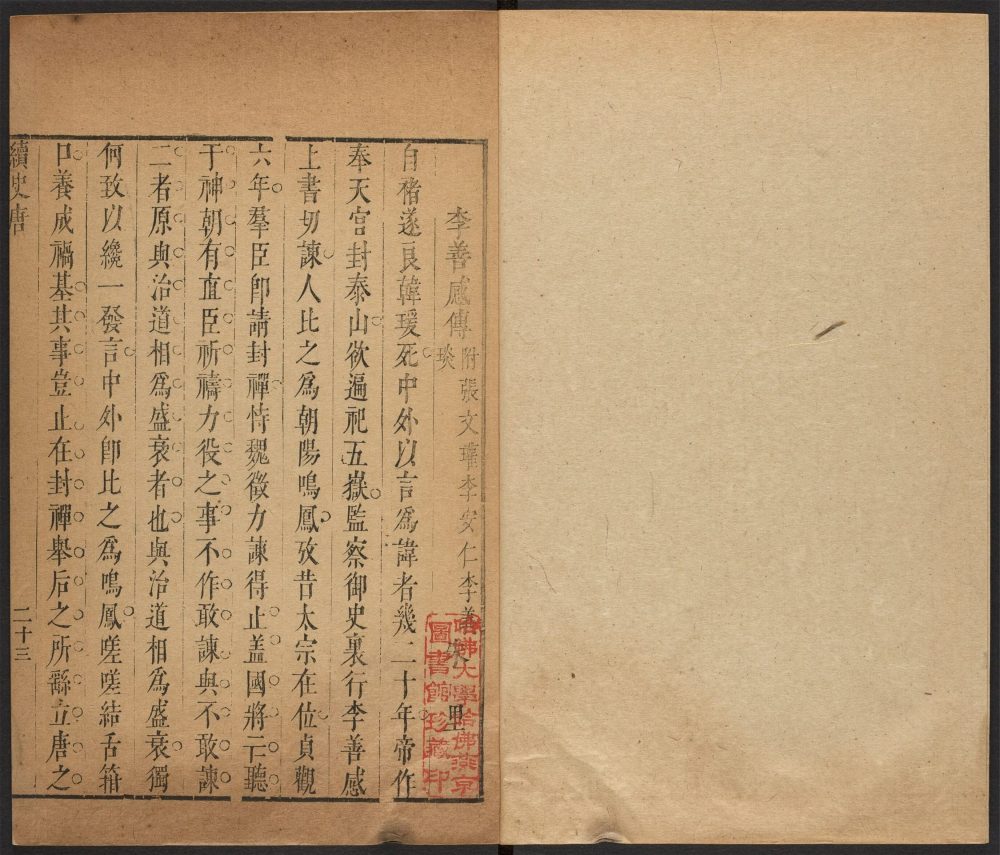 李善感傳附張文瓘李安仁李義琰
自褚遂良韓瑗死中外以言爲諱者幾二十年帝作
奉天宮封泰山欲遍祀五嶽監察御史裏行李善感
上書切諫人比之爲朝陽鳴鳳攷昔太宗在位貞觀
六年羣臣卽請封禪恃魏徵力諫得止蓋國將亡聽
于神朝有直臣祈禱力役之事不作敢諫與不敢諫
二者原與治道相爲盛衰者也與治道相爲盛衰獨
何致以纔一發言中外卽比之爲鳴鳳嗟嗟結舌箝
口養成禍基其事豈止在封禪舉后之所繇立唐之
續史唐
二十三
哈佛大學哈佛燕京
圖書館珍藏印